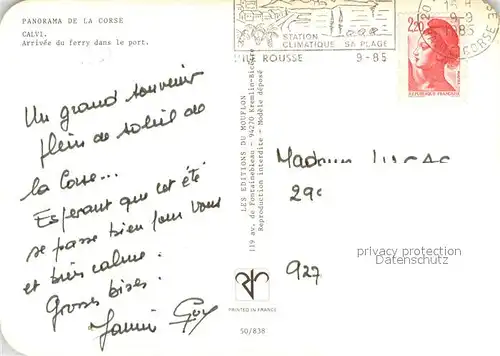 PANORAMA DE LA CORSE
CALVI.
Arrivée du ferry dans le port.
Un grand souvenir
plein de soleil de
la Corse...
Esperant que cet été
se passe bien pour vous
et très calme.
Grosses bises.
Guy
STATION
CLIMATIQUE SA PLAGE
ROUSSE 9-85
9-9
1985
CORSE
2,20
REPUBLIQUE FRANCAISE
LES EDITIONS DU MOUFLON
119 av. de Fontainebleau - 94270 Kremlin-Bicêtre
Reproduction interdite - Modèle déposé
29
927
privacy protection
Datenschutz
PRINTED IN FRANCE
50/838